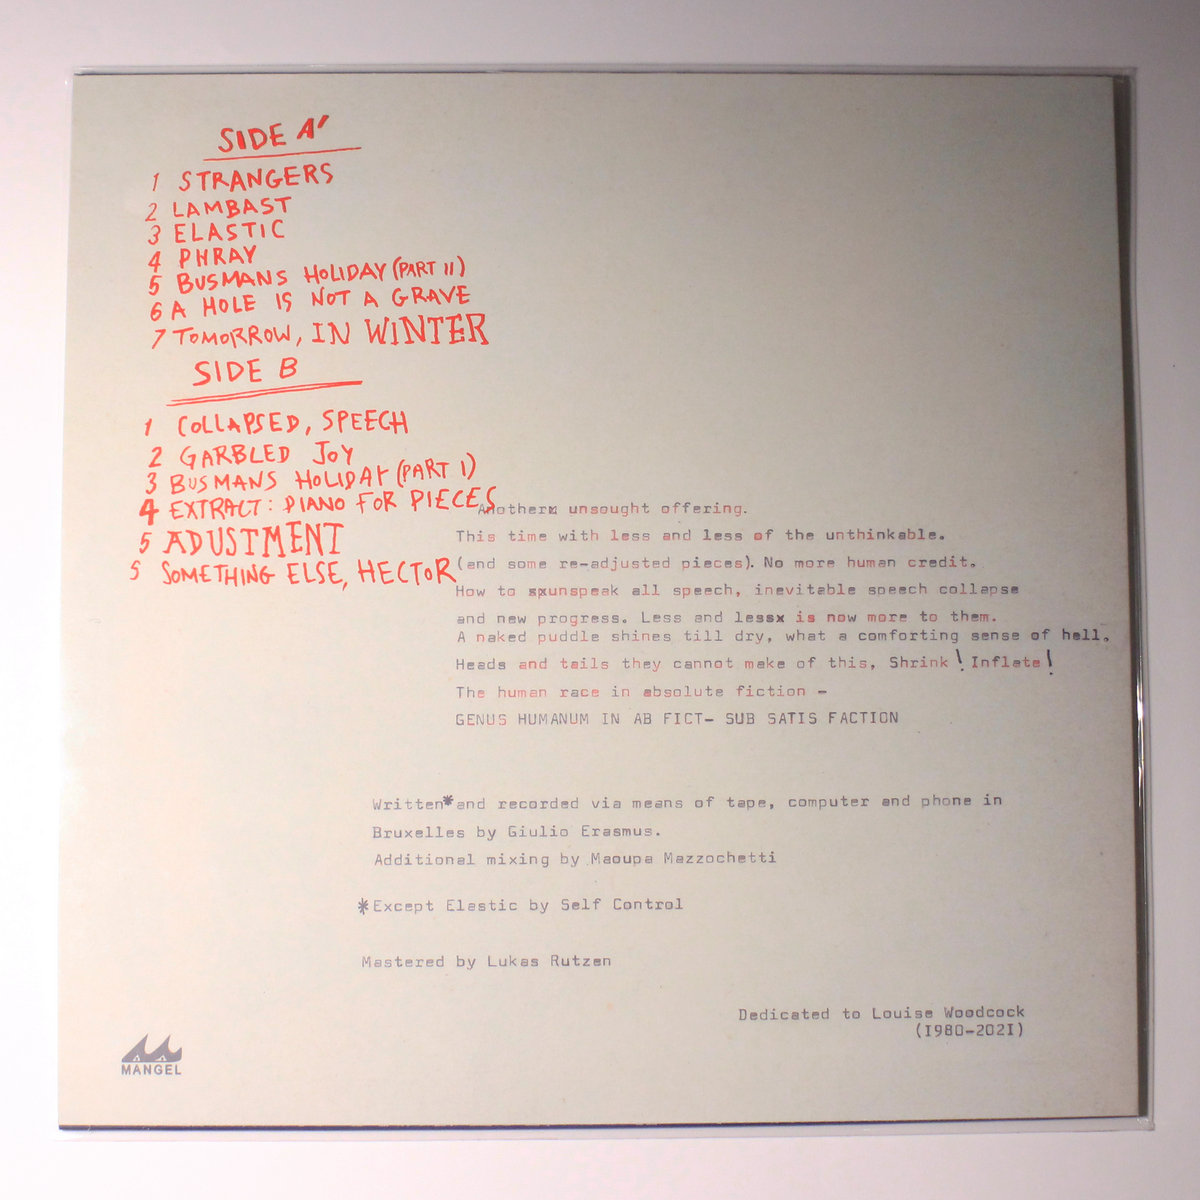 SIDE A'
1 STRANGERS
2 LAMBAST
3 ELASTIC
4 PHRAY
5 BUSMANS HOLIDAY (PART II)
6 A HOLE IS NOT A GRAVE
7 TOMORROW, IN WINTER
SIDE B
1 COLLAPSED, SPEECH
2 GARBLED JOY
3 BUSMANS HOLIDAY (PART I)
4 EXTRACT: PIANO FOR PIECES
5 ADUSTMENT
5 SOMETHING ELSE, HECTOR
Anotherx unsought offering.
This time with less and less of the unthinkable.
(and some re-adjusted pieces). No more human credit.
How to spxunspeak all speech, inevitable speech collapse
and new progress. Less and lessx is now more to them.
A naked puddle shines till dry, what a comforting sense of hell.
Heads and tails they cannot make of this, Shrink! Inflate!
The human race in absolute fiction -
GENUS HUMANUM IN AB FICT- SUB SATIS FACTION
Written*and recorded via means of tape, computer and phone in
Bruxelles by Giulio Erasmus.
Additional mixing by Maoupa Mazzochetti
*Except Elastic by Self Control
Mastered by Lukas Rutzen
Dedicated to Louise Woodcock
(1980-2021)
MANGEL